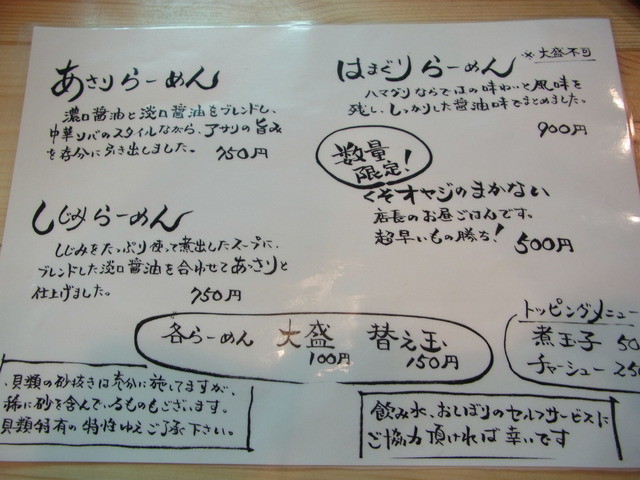 あさりらーめん
濃口醤油と淡口醤油をブレンドし、
中華ソバのスタイルながら、アサリの旨み
を存分に引き出しました。 750円
はまぐりらーめん ※大盛不可
ハマグリならではの味わいと風味を
残し、しっかりした醤油味でまとめました。
900円
数量
限定!
くそオヤジのまかない
店長のお昼ごはんです。
超早いもの勝ち! 500円
しじみらーめん
しじみをたっぷり使って煮出したスープに、
ブレンドした淡口醤油を合わせてあっさりと
仕上げました。 750円
各らーめん 大盛 替え玉
100円 150円
トッピングメニュー
煮玉子 50
チャーシュー 250
貝類の砂抜きは充分に施してますが、
稀に砂を含んでいるものもございます。
貝類特有の特性ゆえご了承下さい。
飲み水、おしぼりのセルフサービスに
ご協力頂ければ幸いです